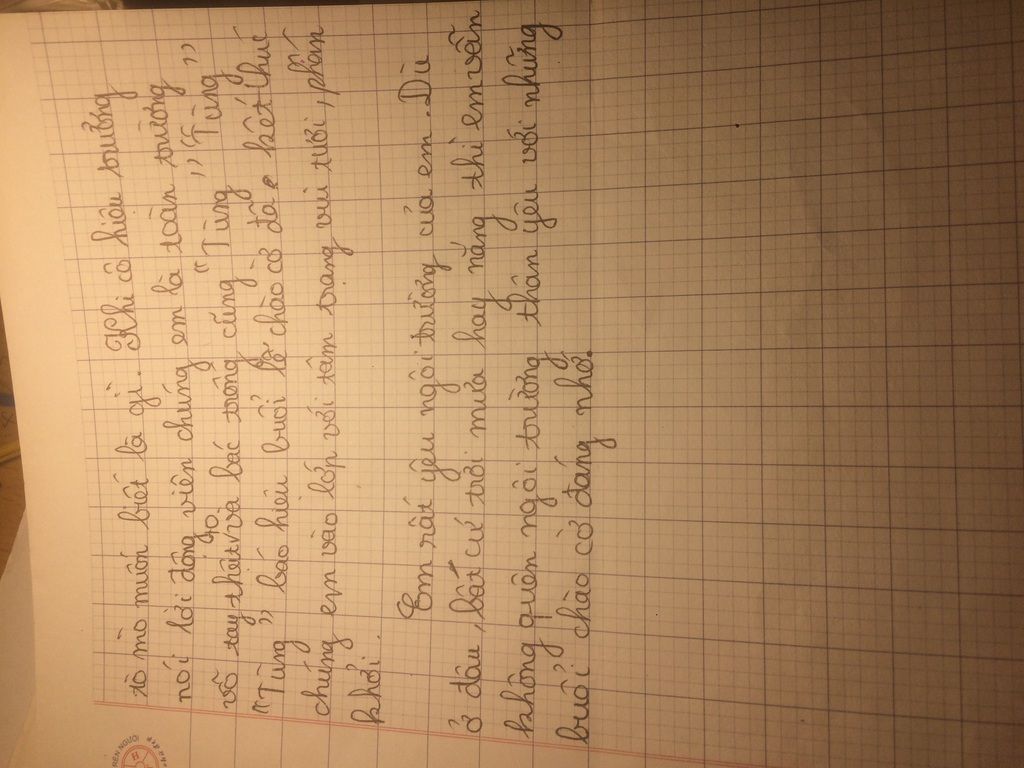 tò mò muốn biết là gì. Khi cô hiệu trưởng
nói lời động viên chúng em là toàn trường
vỗ tay thật to và bác trống cũng "Tùng", "Tùng"
"Tùng" báo hiệu buổi lễ chào cờ đã kết thúc
chúng em vào lớp với tâm trạng vui tươi, phấn
khởi.
Em rất yêu ngôi trường của em. Dù
ở đâu, bất cứ trời mưa hay nắng thì em vẫn
không quên ngôi trường thân yêu với những
buổi chào cờ đáng nhớ.
RÈN NGƯỜI